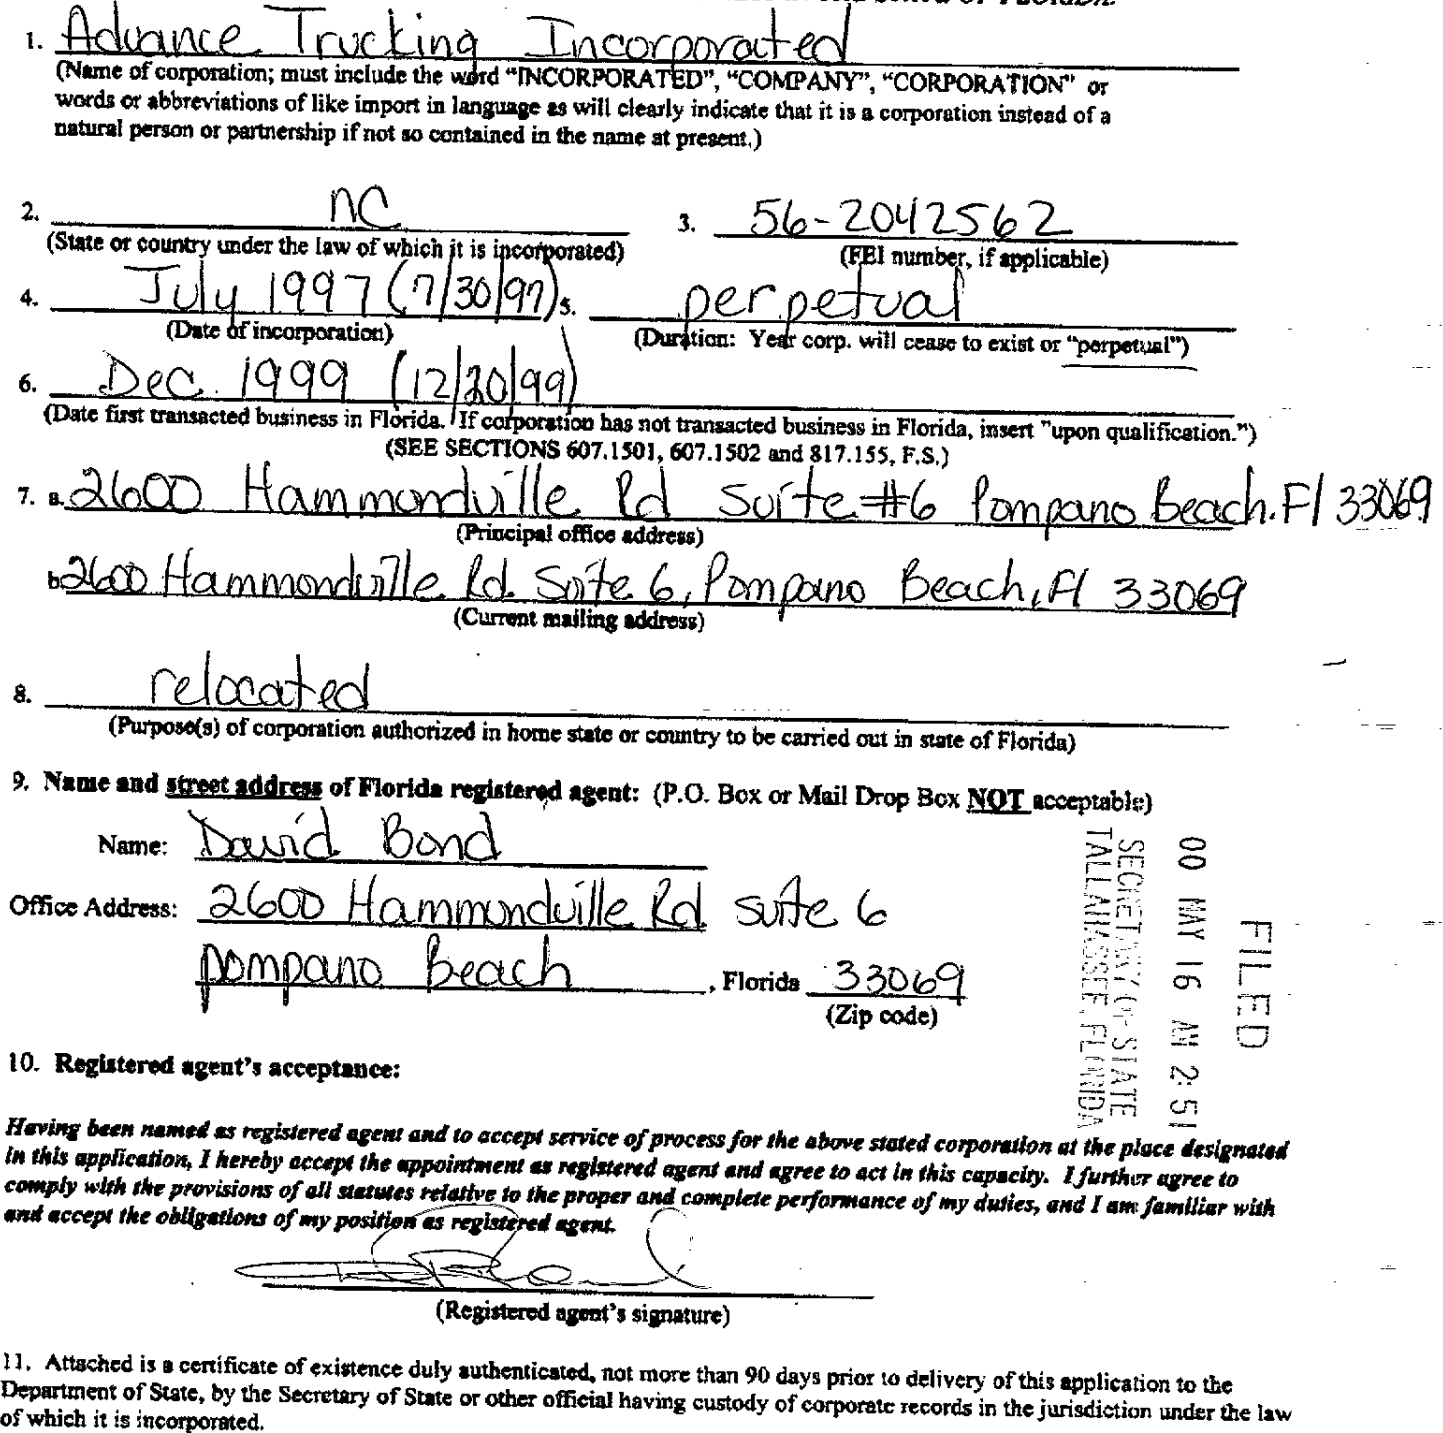 1. Advance Trucking Incorporated
(Name of corporation; must include the word “INCORPORATED”, “COMPANY”, “CORPORATION” or
words or abbreviations of like import in language as will clearly indicate that it is a corporation instead of a
natural person or partnership if not so contained in the name at present.)
2. NC 3. 56-2042562
(State or country under the law of which it is incorporated) (FEI number, if applicable)
4. July 1997 (7/30/97) 5. perpetual
(Date of incorporation) (Duration: Year corp. will cease to exist or “perpetual”)
6. Dec. 1999 (12/20/99)
(Date first transacted business in Florida. If corporation has not transacted business in Florida, insert "upon qualification.")
(SEE SECTIONS 607.1501, 607.1502 and 817.155, F.S.)
7. a. 2600 Hammondville Rd Suite #6 Pompano Beach. Fl 33069
(Principal office address)
b. 2600 Hammondville Rd. Suite 6, Pompano Beach, Fl 33069
(Current mailing address)
8. relocated
(Purpose(s) of corporation authorized in home state or country to be carried out in state of Florida)
9. Name and street address of Florida registered agent: (P.O. Box or Mail Drop Box NOT acceptable)
Name: David Bond
Office Address: 2600 Hammondville Rd. suite 6
pompano Beach, Florida 33069
(Zip code)
FILED
00 MAY 16 AM 2:51
SECRETARY OF STATE
TALLAHASSEE, FLORIDA
10. Registered agent’s acceptance:
Having been named as registered agent and to accept service of process for the above stated corporation at the place designated
in this application, I hereby accept the appointment as registered agent and agree to act in this capacity. I further agree to
comply with the provisions of all statutes relative to the proper and complete performance of my duties, and I am familiar with
and accept the obligations of my position as registered agent.
(Registered agent’s signature)
11. Attached is a certificate of existence duly authenticated, not more than 90 days prior to delivery of this application to the
Department of State, by the Secretary of State or other official having custody of corporate records in the jurisdiction under the law
of which it is incorporated.